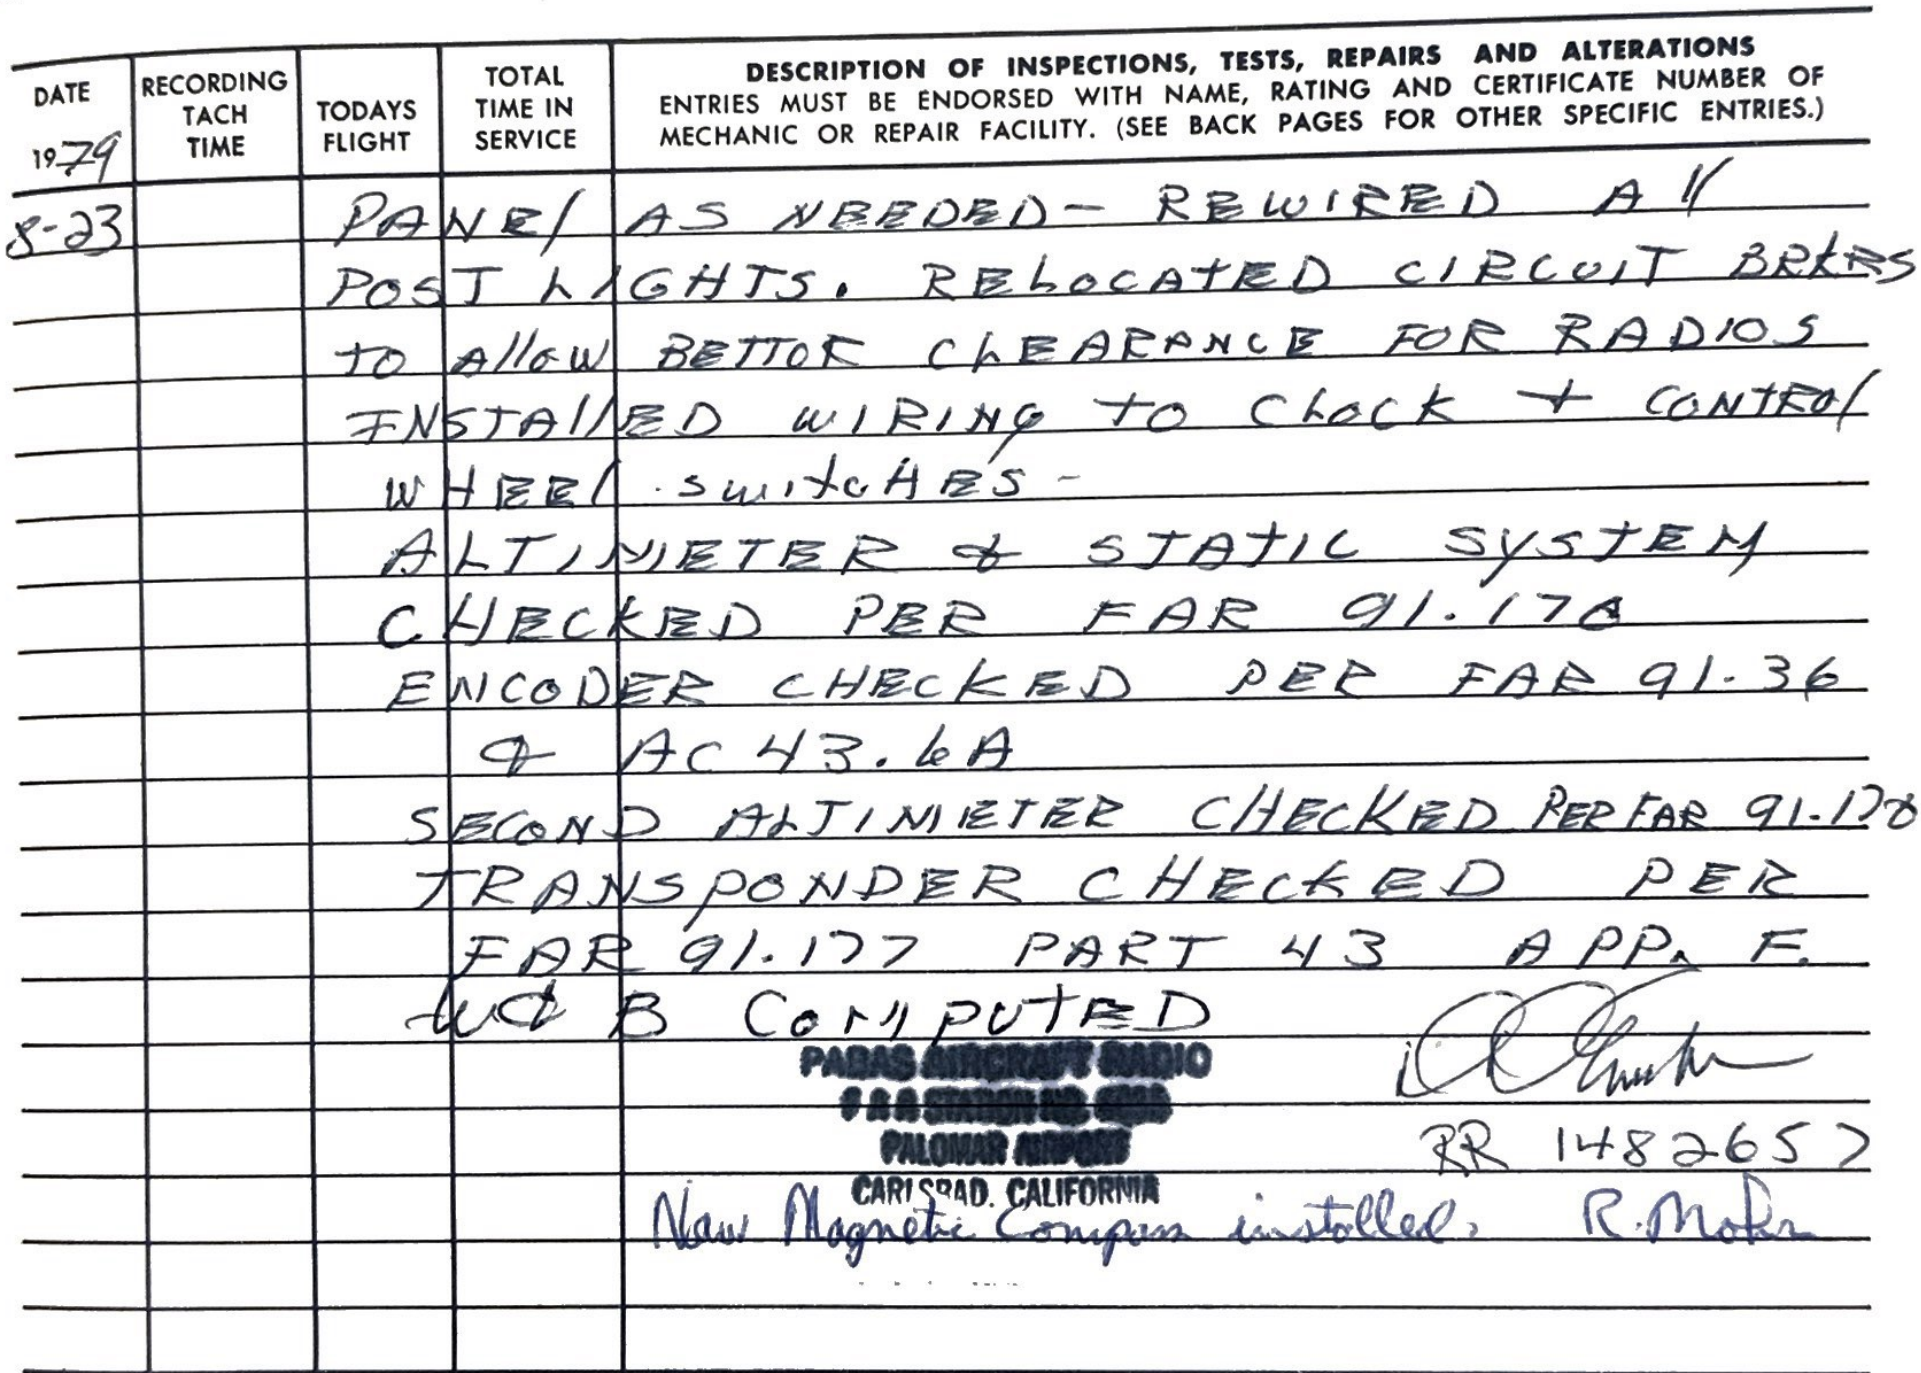 DATE
1979
RECORDING TACH TIME
TODAYS FLIGHT
TOTAL TIME IN SERVICE
DESCRIPTION OF INSPECTIONS, TESTS, REPAIRS AND ALTERATIONS
ENTRIES MUST BE ENDORSED WITH NAME, RATING AND CERTIFICATE NUMBER OF
MECHANIC OR REPAIR FACILITY. (SEE BACK PAGES FOR OTHER SPECIFIC ENTRIES.)
8-23 PANEl AS NEEDED - REWIRED All
POST LIGHTS. RELOCATED CIRCUIT BRKRS
TO Allow BETTOR CLEARANCE FOR RADIOS
INSTAllED WIRING TO CLOCK + CONTROl
WHEEl switcHES -
ALTIMETER & STATIC SYSTEM
CHECKED PER FAR 91.170
ENCODER CHECKED PER FAR 91.36
& AC 43.6A
SECOND ALTIMETER CHECKED PER FAR 91.170
TRANSPONDER CHECKED PER
FAR 91.177 PART 43 APP. F.
W & B COMPUTED
AIRCRAFT RADIO
FAA STATION NO.
PALOMAR AIRPORT
RR 1482657
CARLSBAD, CALIFORNIA
New Magnetic Compass installed. R. Mohr